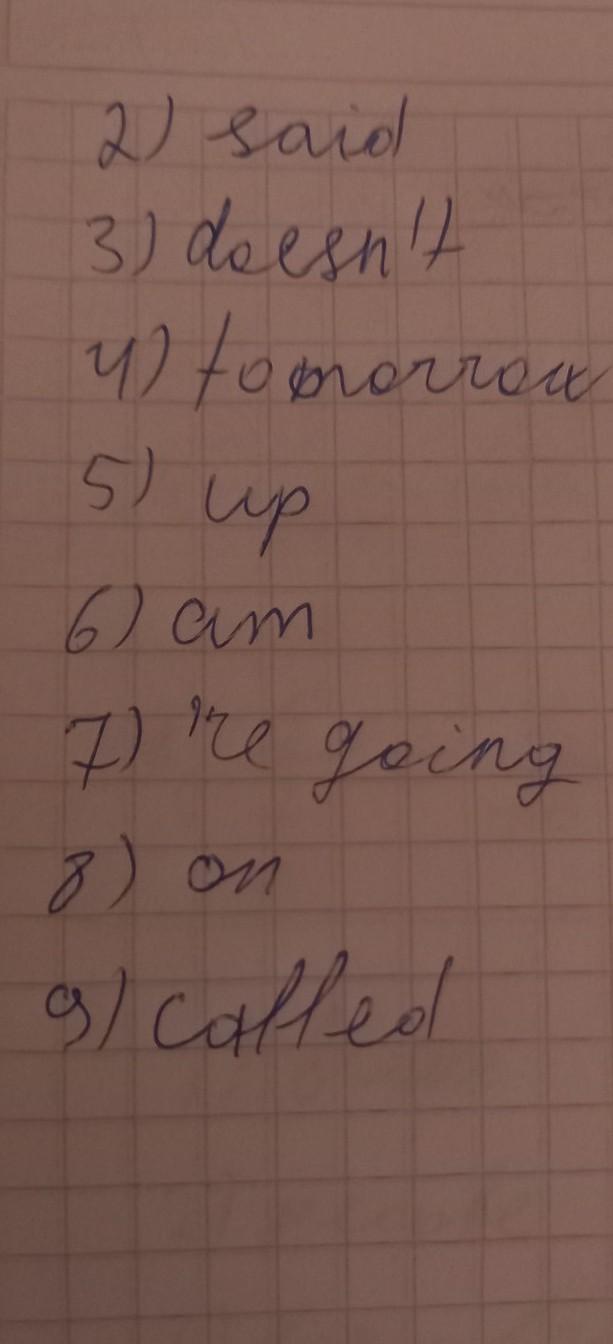 2) said
3) doesn't
4) tomorrow
5) up
6) am
7) 're going
8) on
9) called